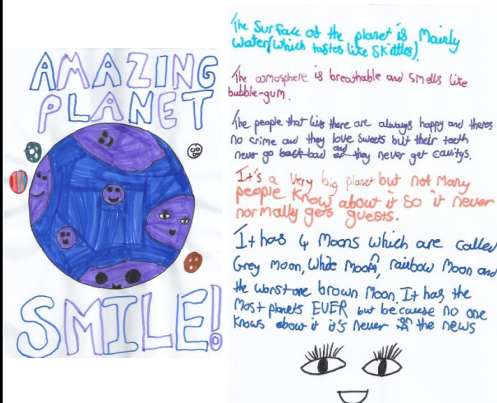 AMAZING
PLANET
SMILE!
The surface of the planet is Mainly
water(which tastes like Skittles).
The aomosphere is breathable and smells like
bubble-gum.
The people that live there are always happy and theres
no crime and they love sweets but their teeth
never go bad and they never get cavitys.
It's a very big planet but not Many
people know about it so it never
normally gets guests.
It has 4 Moons which are called
Grey Moon, White Moon, rainbow Moon and
the worst one brown Moon. It has the
Most planets EVER but because no one
knows about it it's never in the news